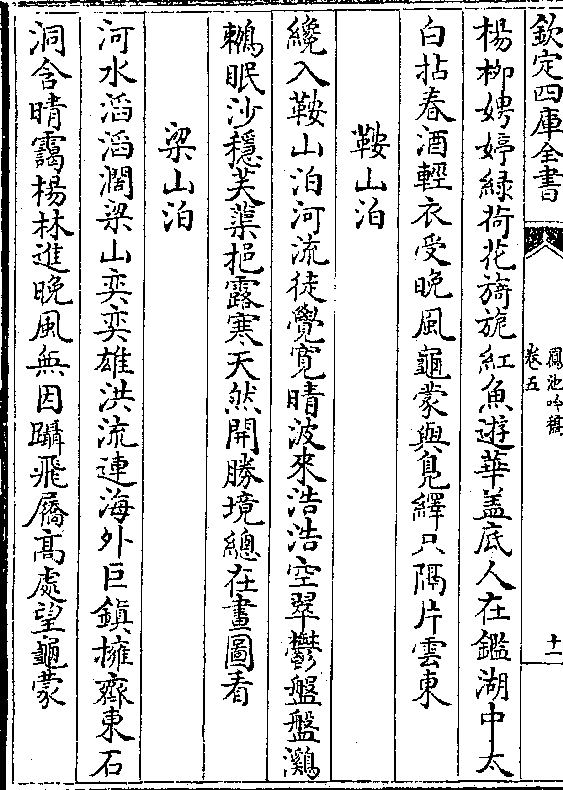 欽定四庫全書
鳳池吟稿
卷五
十一
楊柳娉婷緑荷花旖旎紅魚遊華盖底人在鑑湖中太
白拈春酒輕衣受晩風龜蒙與鳬繹只隔片雲東
鞍山泊
纔入鞍山泊河流徒覺寛晴波來浩浩空翠鬱盤盤鸂
鶒眠沙穩芙蕖挹露寒天然開勝境總在畫圖看
梁山泊
河水滔滔濶梁山奕奕雄洪流連海外巨鎮擁齊東石
洞含晴靄楊林進晩風無因躡飛屩髙處望龜蒙